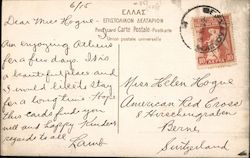 6/15
ΕΛΛΑΣ
ΕΠΙΣΤΟΛΙΚΟΝ ΔΕΛΤΑΡΙΟΝ
Carte Postale - Postkarte
Union postale universelle
Dear Miss Hogue -
Am enjoying Athens
for a few days. It is
a beautiful place and
I would like to stay
for a long time. Hope
this card finds you
well and happy. Kindest
regards to all
Miss Helen Hogue
American Red Cross
Hirschengraben
Berne
Switzerland